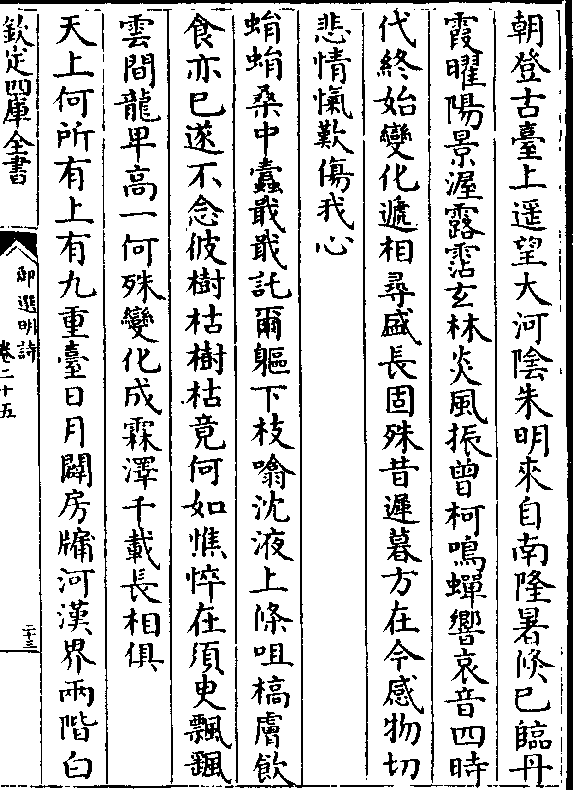 朝登古臺上遥望大河陰朱明來自南隆暑候已臨丹
霞曜陽景渥露霑玄林炎風振曾柯鳴蟬響哀音四時
代終始變化遞相尋盛長固殊昔遲暮方在今感物切
悲情愾歎傷我心
蛸蛸桑中蠧戢戢託爾軀下枝噏沈液上條咀槁膚飲
食亦已遂不念彼樹枯樹枯竟何如憔悴在須臾飄飖
雲間龍卑高一何殊變化成霖澤千載長相俱
天上何所有上有九重臺日月闢房牖河漢界兩階白
欽定四庫全書
御選明詩
卷二十五
二十三